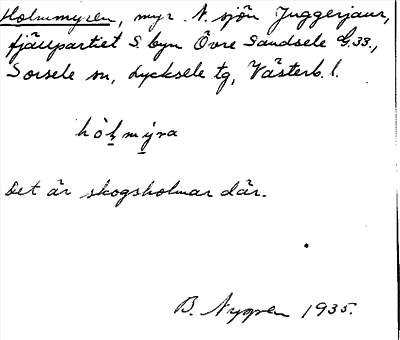 Holmmyren, myr N. sjön Juggerjaur,
fjällpartiet S. byn Övre Sandsele G.33.,
Sorsele sn, Lycksele tg, Västerb. l.
hòl̥my̆ra
Det är skogsholmar där.
B. Nygren 1935.